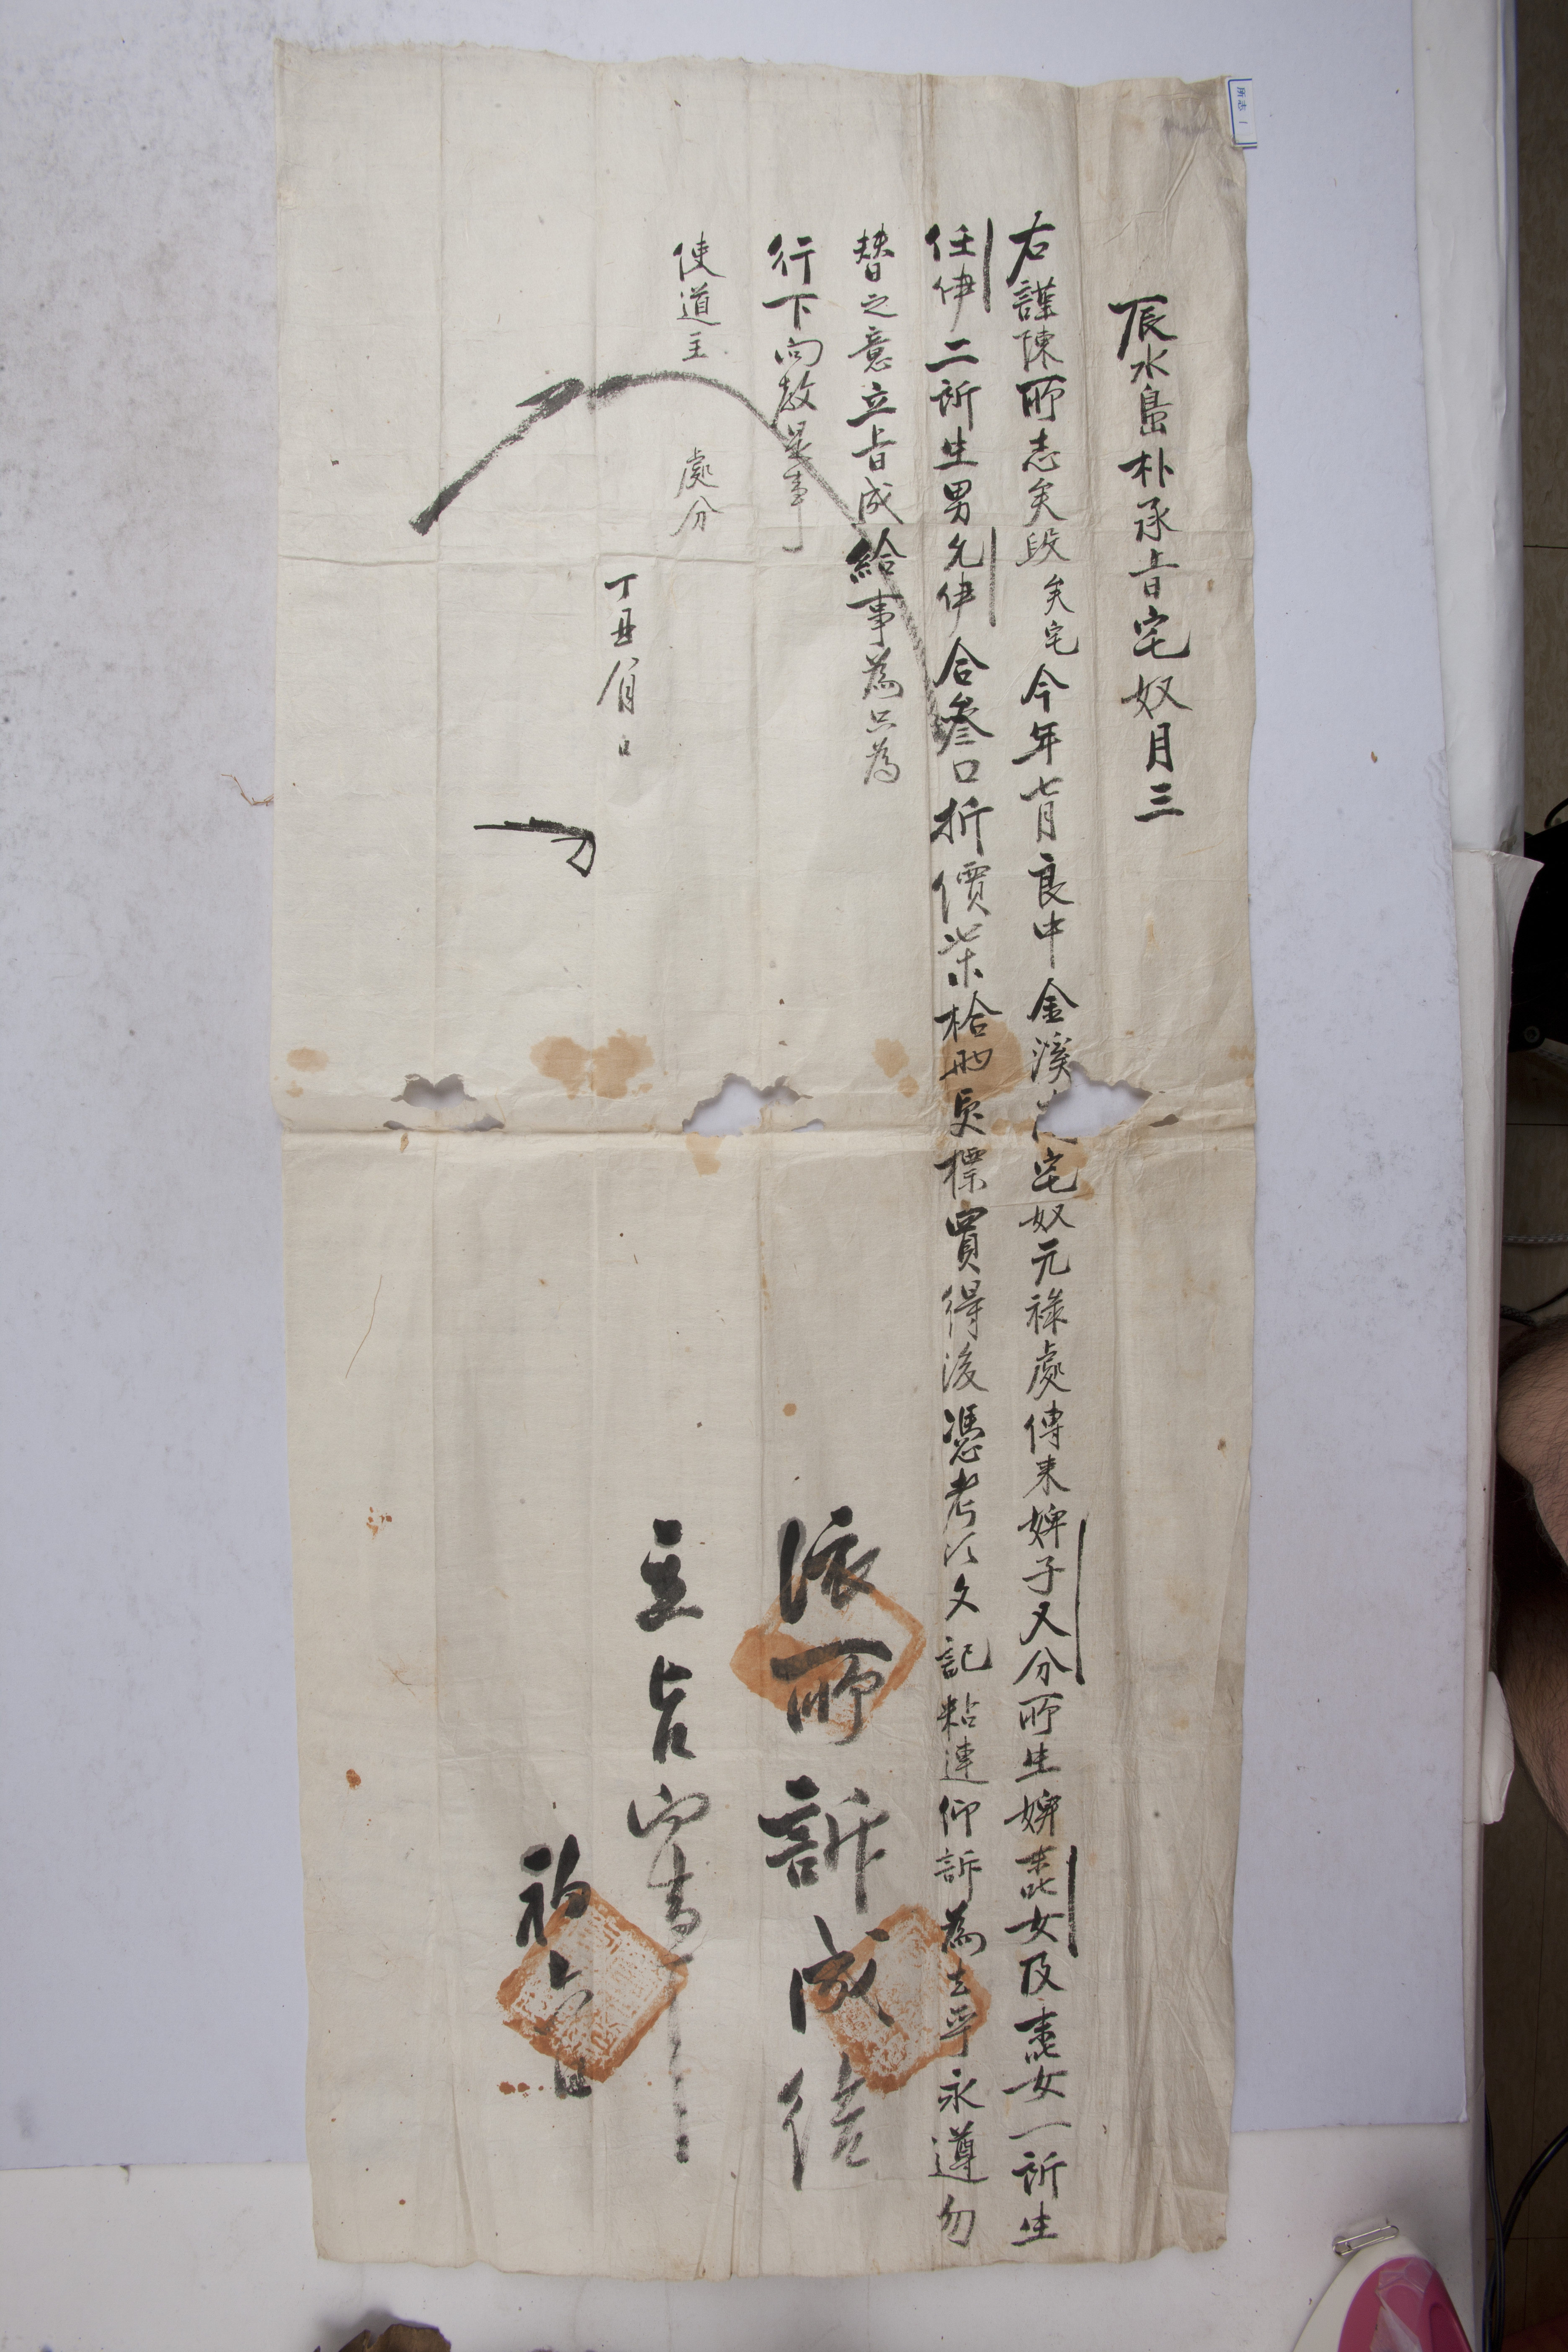 所志 1
辰水島朴承旨宅奴月三
右謹陳所志矣段矣宅今年七月良中金溪宅奴元祿處傳來婢子又分所生婢女及女一所生
任伊二所生男允伊合參口折價柒拾兩交標買得後憑考次文記粘連仰訴爲去乎永遵勿
替之意立旨成給事爲只爲
行下向敎是事
使道主 處分
丁丑 月 日
依所訴成給
立旨向事
初六日